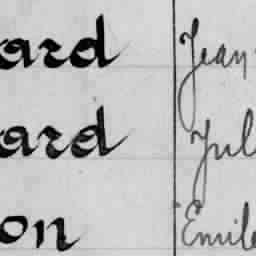 ard Jean
ard Jul
on Emile